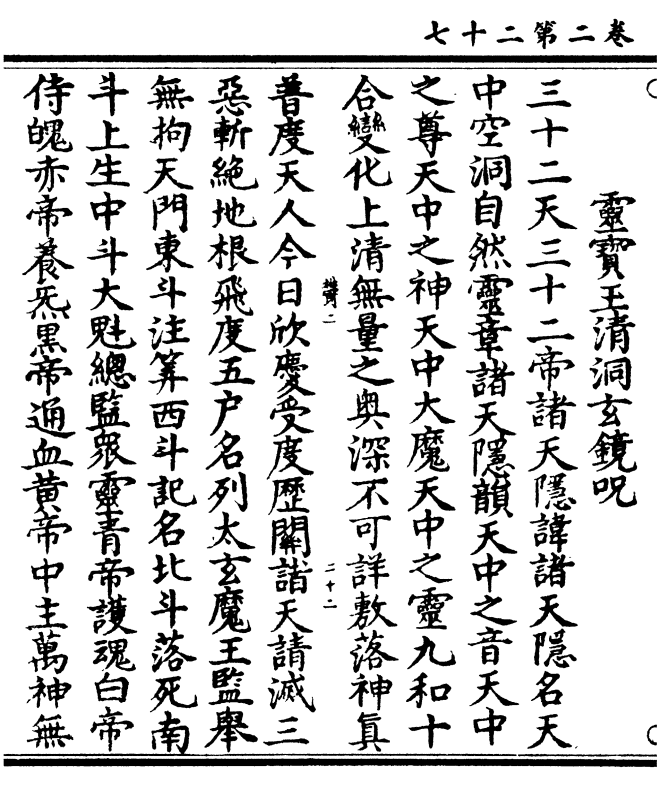 卷二第二十七
靈寶王清洞玄鏡呪
三十二天三十二帝諸天隱諱諸天隱名天
中空洞自然靈章諸天隱韻天中之音天中
之尊天中之神天中大魔天中之靈九和十
合變化上清無量之奥深不可詳敷落神真
二
二十二
普度天人今日欣慶受度歷關諸天請滅三
惡斬絶地根飛度五户名列太玄魔王監舉
無拘天門東斗注筭西斗記名北斗落死南
斗上生中斗大魁總監衆靈青帝護魂白帝
侍魄赤帝養炁黑帝通血黄帝中主萬神無